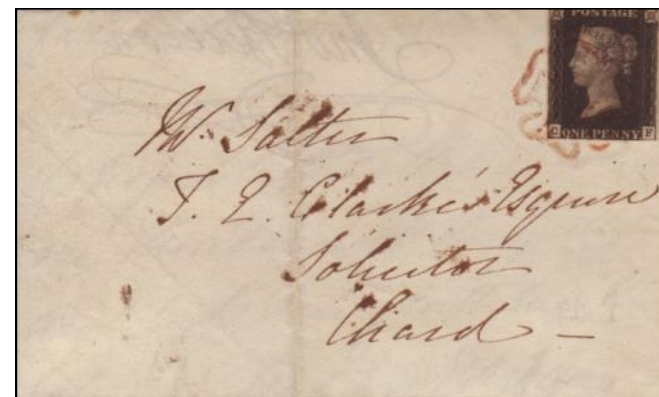 POSTAGE
C ONE PENNY F
Mr. Salter
T. E. Clarke's Esquire
Solicitor
Chard –